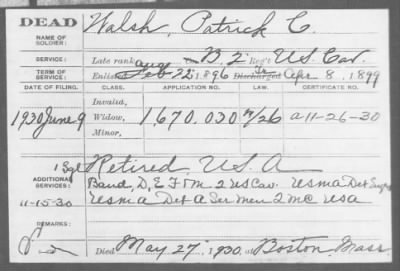 DEAD
NAME OF SOLDIER: Walsh, Patrick C.
SERVICE: Late rank, B. 2 Reg't U.S. Cav.
TERM OF SERVICE: Enlisted Feb 22, 1896 Discharged Apr 8, 1899
DATE OF FILING. CLASS. APPLICATION NO. LAW. CERTIFICATE NO.
Invalid,
1930 June 9 Widow, 1,670,030 A-11-26-30
Minor,
1 Sgt Retired, U.S.A
ADDITIONAL SERVICES: Band, D, E, F & M 2 US Cav. USMA Det
11-15-30 USMA Det A Ser Men 2 MC USA
REMARKS:
Died May 27, 1930, at Boston, Mass